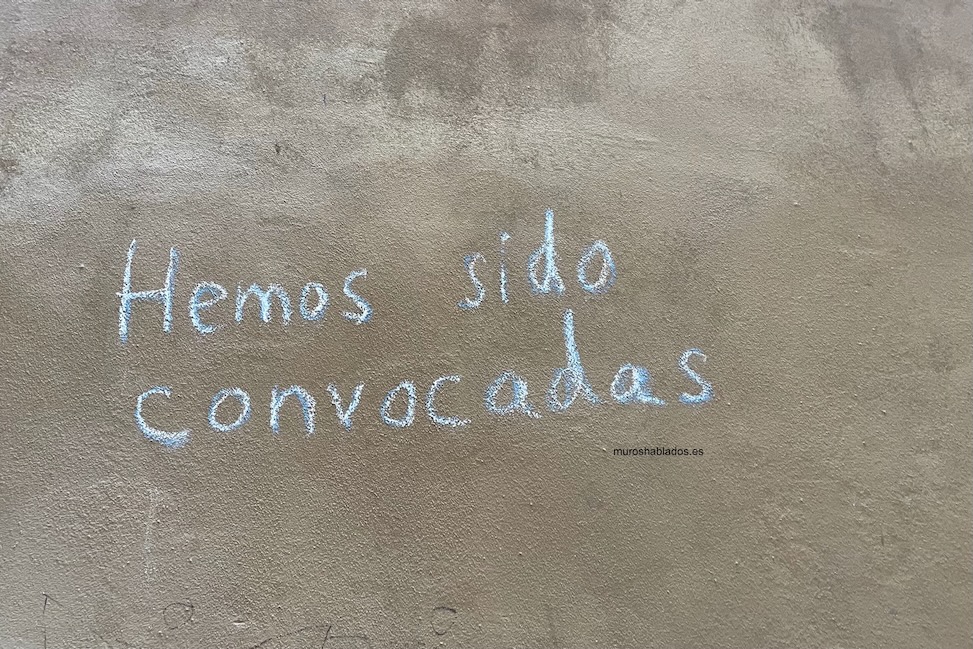 Hemos sido
convocadas
muroshablados.es